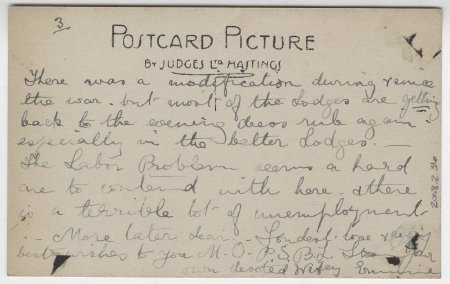 3
POSTCARD PICTURE
BY JUDGES LTD HASTINGS
There was a modification during & since
the war. but most of the Lodges are getting
back to the evening dress rule again -
especially in the better Lodges. —
The Labor Problem seems a hard
one to contend with here. & there
is a terrible lot of unemployment
More later dear. Fondest love &
best wishes to you M. O. P. S. B. L. Your
own devoted
2008.2.36